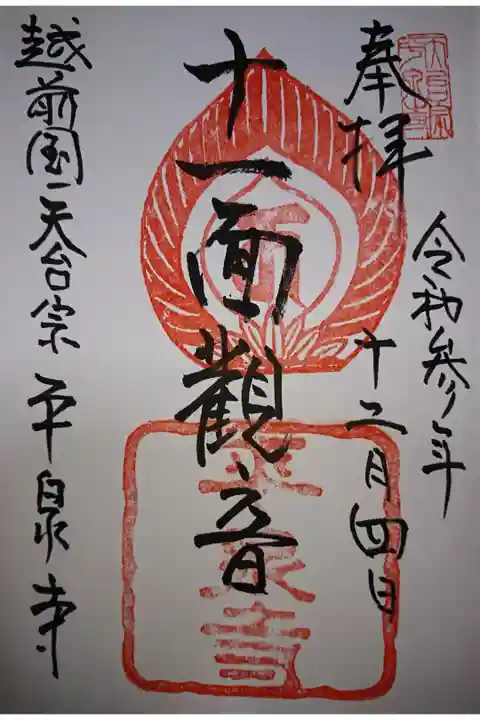 奉拝
令和参年
十二月四日
十一面觀音
平泉寺
越前国 天台宗 平泉寺